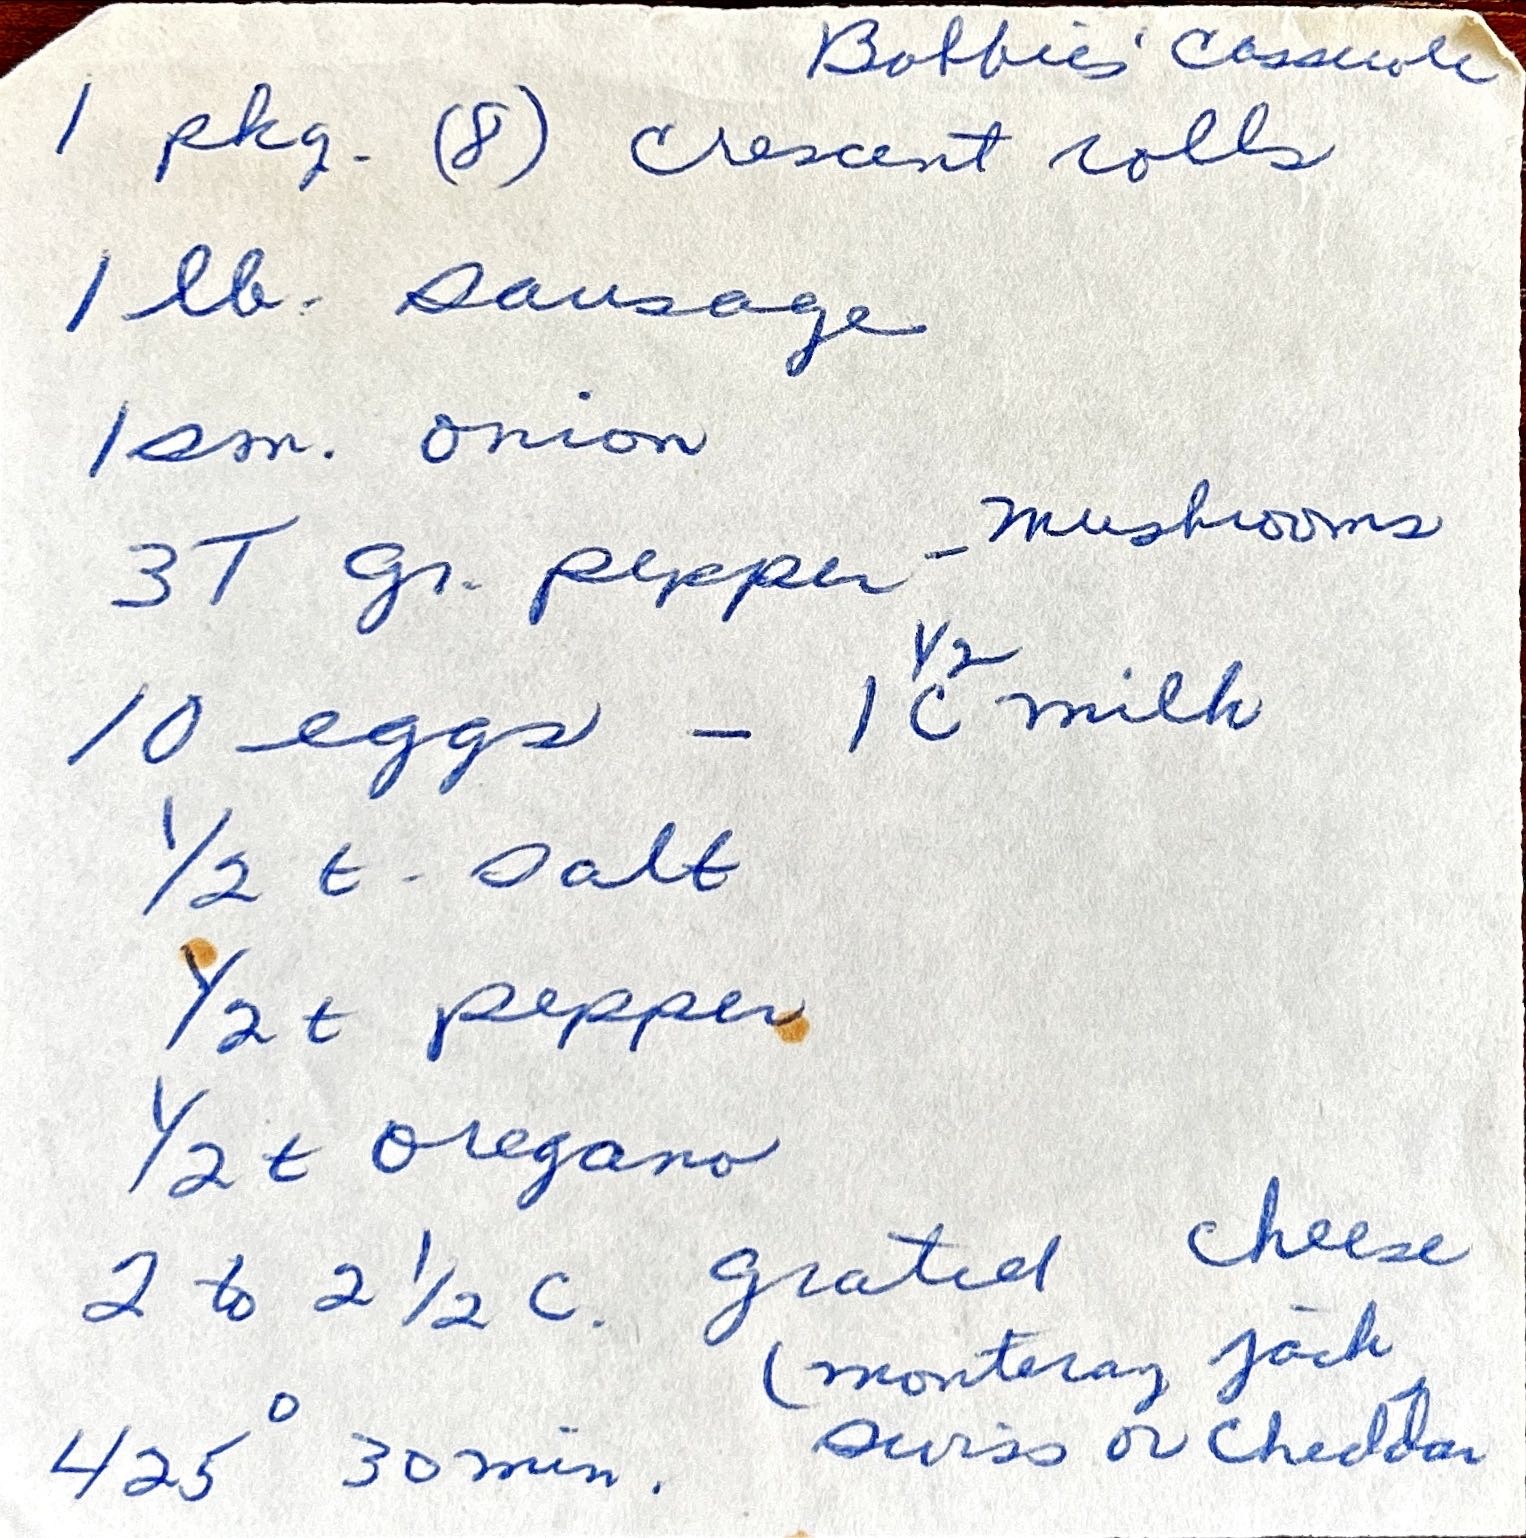 Bobbies' Casserole
1 pkg. (8) crescent rolls
1 lb. sausage
1 sm. onion
3T gr. pepper - mushrooms
10 eggs - 1 1/2 C milk
1/2 t. salt
1/2 t pepper
1/2 t oregano
2 to 2 1/2 c. grated cheese
(monteray jack,
swiss or cheddar
425° 30 min.